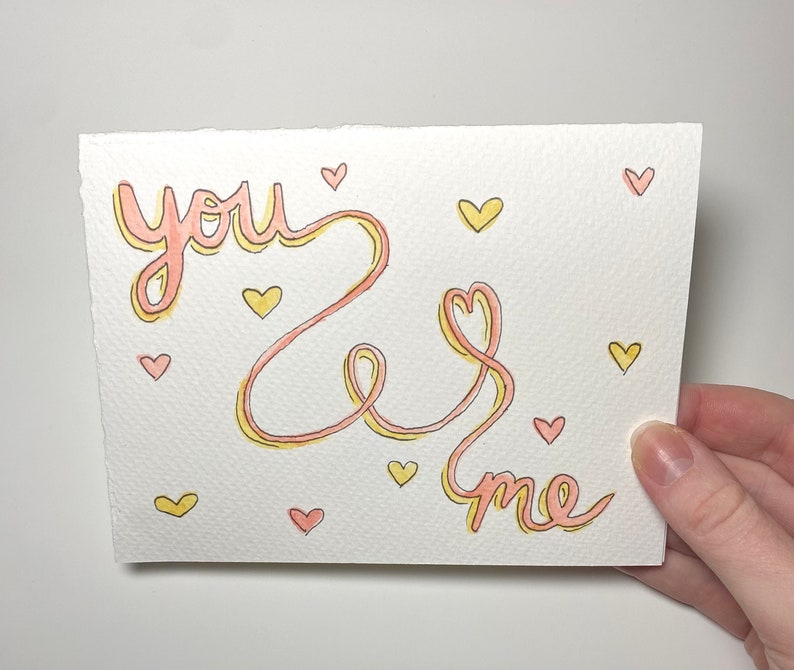 you
me